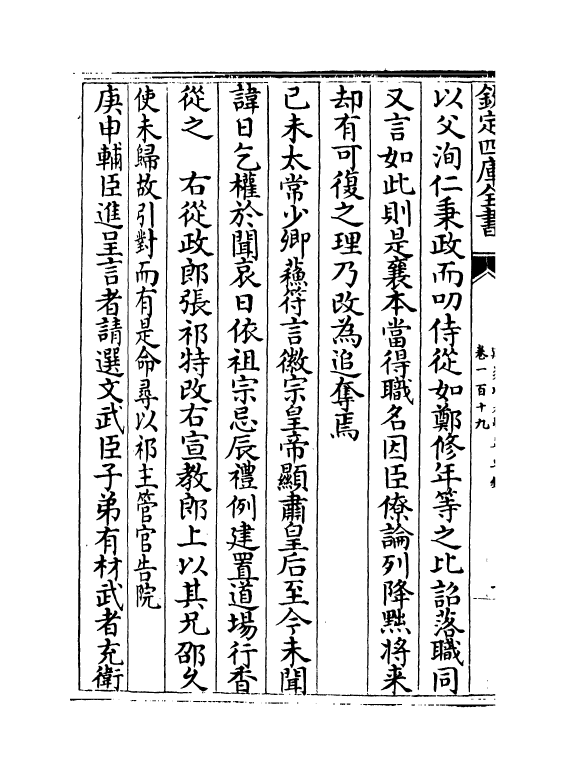 欽定四庫全書
卷一百十九
以父洵仁秉政而叨侍從如鄭修年等之比詔落職同
又言如此則是襄本當得職名因臣僚論列降黜將来
却有可復之理乃改為追奪焉
己未太常少卿蘓符言徽宗皇帝顯肅皇后至今未聞
諱日乞權於聞哀日依祖宗忌辰禮例建置道場行香
從之　右從政郎張祁特改右宣教郎上以其兄邵久
使未歸故引對而有是命尋以祁主管官告院
庚申輔臣進呈言者請選文武臣子弟有材武者充衛